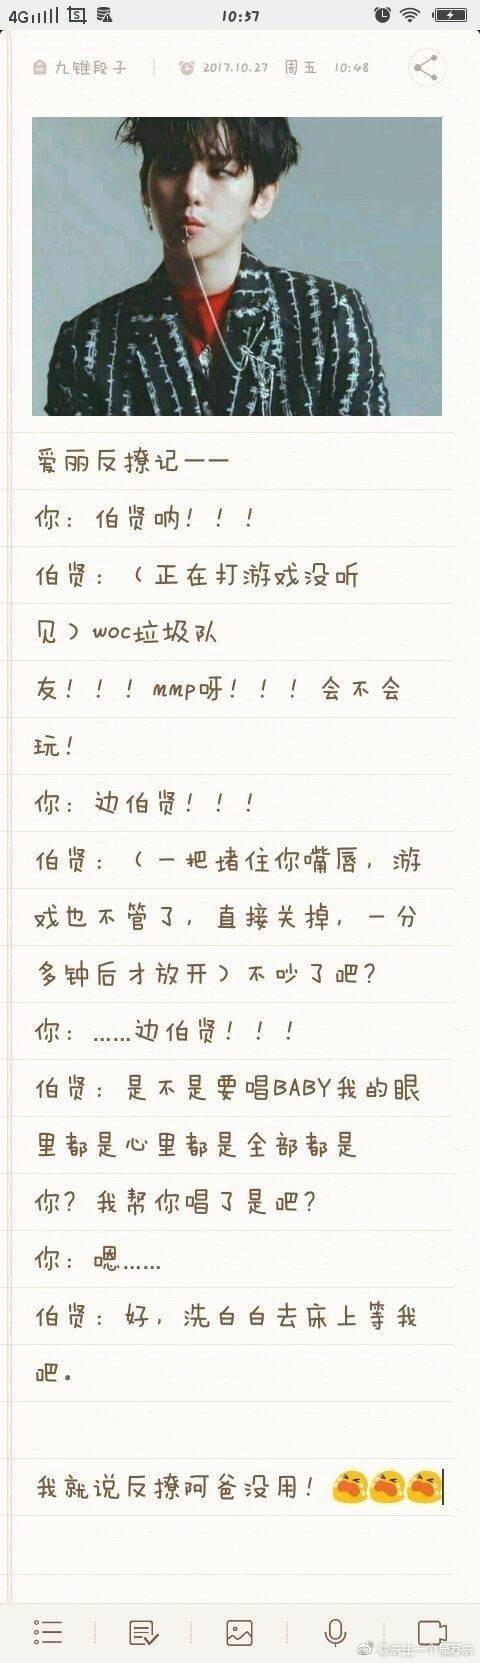 4G 10:57
九锥段子 | 2017.10.27 周五 10:48
爱丽反撩记一一
你：伯贤呐！！！
伯贤：（正在打游戏没听
见）woc垃圾队
友！！！mmp呀！！！会不会
玩！
你：边伯贤！！！
伯贤：（一把堵住你嘴唇，游
戏也不管了，直接关掉，一分
多钟后才放开）不吵了吧？
你：……边伯贤！！！
伯贤：是不是要唱BABY我的眼
里都是心里都是全部都是
你？我帮你唱了是吧？
你：嗯……
伯贤：好，洗白白去床上等我
吧。
我就说反撩阿爸没用！😭😭😭